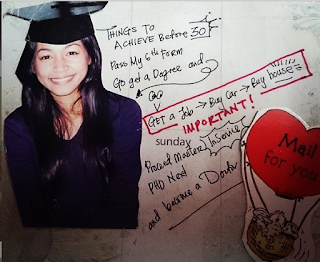 THINGS TO
ACHIEVE Before 30
Pass My 6th Form
Go get a Degree and
GET a Job → Buy car → Buy house
IMPORTANT!
sunday
Proceed Master InService
PHD Next
and become a Doctor
Mail
for you